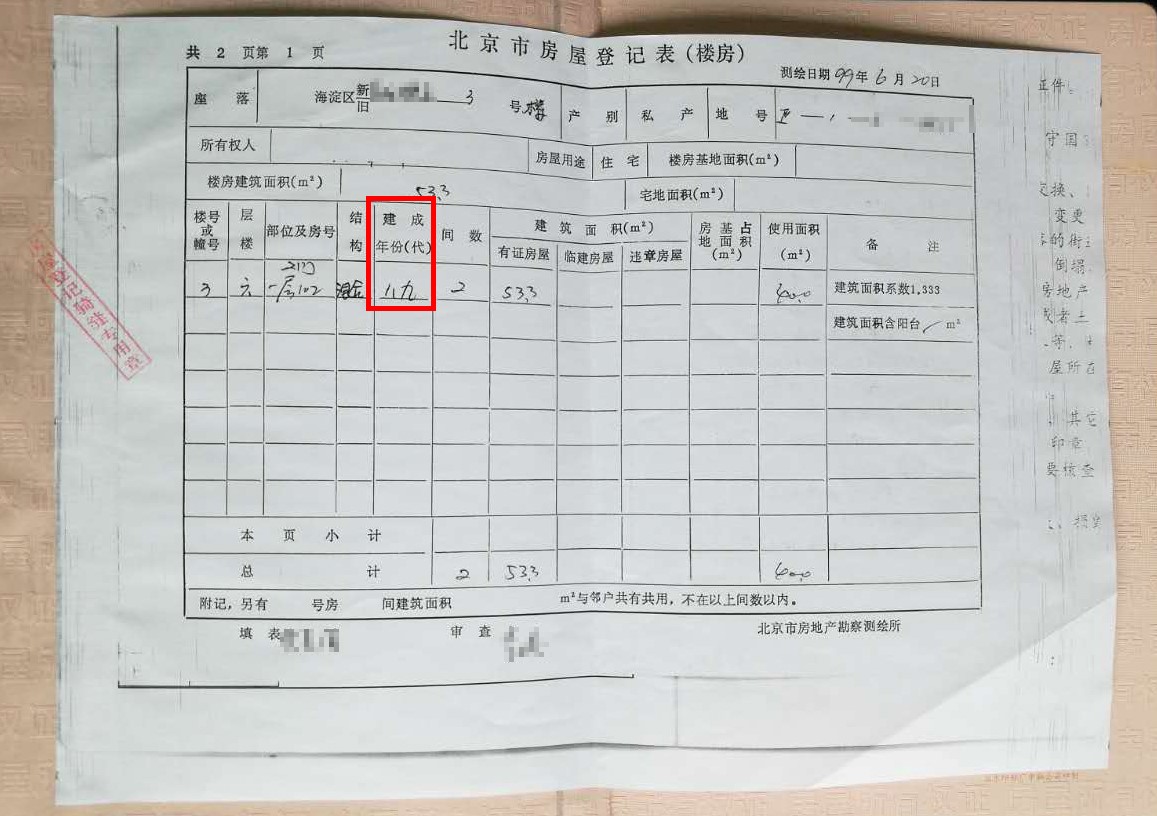 北京市房屋登记表(楼房)
共 2 页第 1 页
测绘日期 99年 6月 20日
座 落 海淀区 新 旧 3 号楼 产 别 私 产 地 号
所有权人 房屋用途 住 宅 楼房基地面积(m²)
楼房建筑面积(m²) 53.3 宅地面积(m²)
楼号或幢号 层楼 部位及房号 结构 建成年份(代) 间数 建筑面积(m²) 房基占地面积(m²) 使用面积(m²) 备 注
有证房屋 临建房屋 违章房屋
3 六 2门一层102 混合 八九 2 53.3 40.0 建筑面积系数1.333
建筑面积含阳台 m²
本 页 小 计
总 计 2 53.3 40.0
附记,另有 号房 间建筑面积 m²与邻户共有共用,不在以上间数以内。
填 表 审 查 北京市房地产勘察测绘所
正件
守国
交换、
变更
的街
倒塌
房地产
或者土
等,
屋所在
其它
印章
要核查
损
骑缝专用章